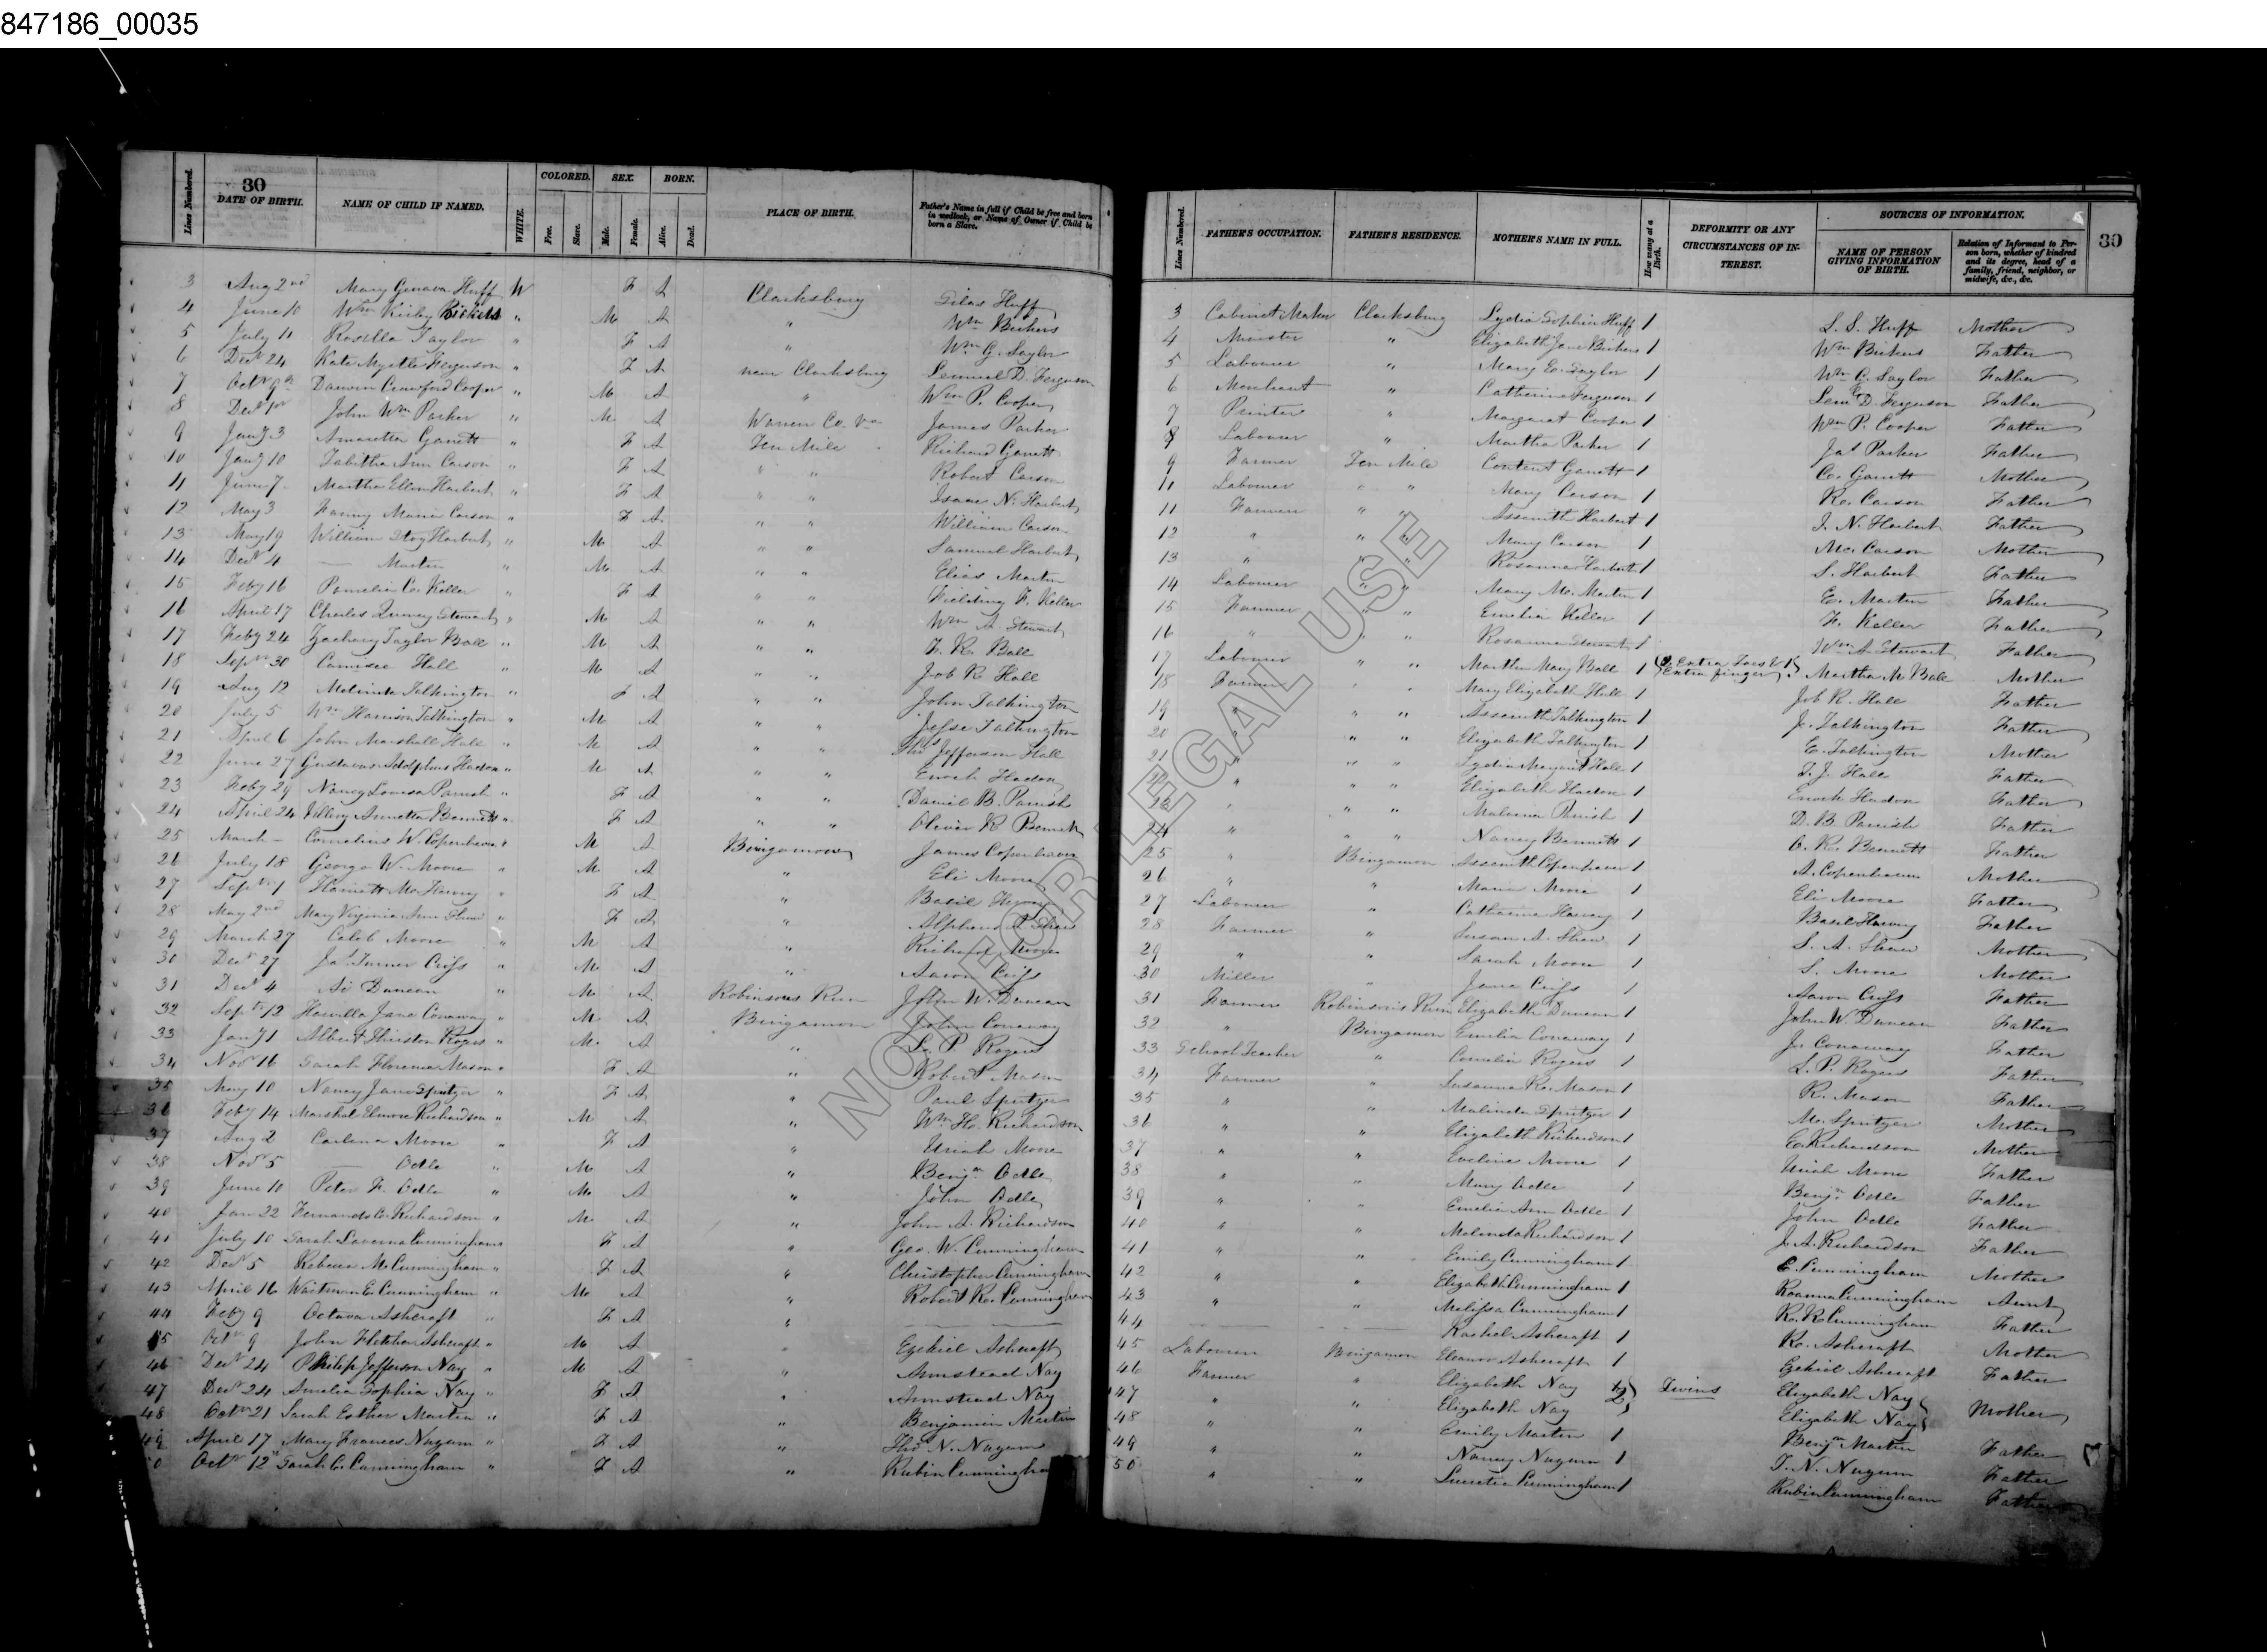 847186_00035
30
Lines Numbered. DATE OF BIRTH. NAME OF CHILD IF NAMED. WHITE. COLORED. Free. Slave. SEX. Male. Female. BORN. Alive. Dead. PLACE OF BIRTH. Father's Name in full if Child be free and born in wedlock, or Name of Owner if Child be born a Slave.
3 Aug 2nd Mary Geneva Huff W F A Clarksburg Silas Huff
4 June 10 Wm Kirby Bickers " M A " Wm Bickers
5 July 11 Rosella Taylor " F A " Wm G. Saylor
6 Decr 24 Kate Myrtle Ferguson " F A near Clarksburg Lemuel D. Ferguson
7 Octr 9th Darwin Crawford Cooper " M A " Wm P. Cooper
8 Decr 1st John Wm Parker " M A Warren Co. Va James Parker
9 Jany 3 Amaretta Garrett " F A Ten Mile Richard Garrett
10 Jany 10 Tabitha Ann Carson " F A " " Robert Carson
11 June 7 Martha Ellen Harbert " F A " " Isaac N. Harbert
12 May 3 Fanny Maria Carson " F A " " William Carson
13 May 19 William Harbert " M A " " Samuel Harbert
14 Decr 4 — Martin " M A " " Elias Martin
15 Feby 16 Pamelia C. Keller " F A " " Fielding F. Keller
16 April 17 Charles Quincy Stewart " M A " " Wm A. Stewart
17 Feby 24 Zachary Taylor Ball " M A " " F. R. Ball
18 Septr 30 Camisee Hall " M A " " Job R Hall
19 Aug 12 Melinda Talkington " F A " " John Talkington
20 July 5 Wm Harrison Talkington " M A " " Jesse Talkington
21 April 6 John Marshall Hall " M A " " Thos Jefferson Hall
22 June 27 Gustavus Adolphus Haden " M A " " Enoch Haden
23 Feby 29 Nancy Louisa Parrish " F A " " Daniel B. Parrish
24 April 24 Annetta Bennett " F A " " Oliver R Bennett
25 March — Cornelius W. Copenhaver " M A Bingamon James Copenhaver
26 July 18 George W. Moore " M A " Eli Moore
27 Septr 1 Harriett M. Harvey " F A " Basil Harvey
28 May 2nd Mary Virginia Ann Shaw " F A " Alpheus A Shaw
29 March 27 Caleb Moore " M A " Richard Moore
30 Decr 27 Jas Turner Criss " M A " Aaron Criss
31 Decr 4 Ai Duncan " M A Robinsons Run John W. Duncan
32 Septr 12 Harvilla Jane Conaway " M A Bingamon John Conaway
33 Jany 1 Albert Thurston Rogers " M A " L. P. Rogers
34 Novr 16 Sarah Florence Mason " F A " Robert Mason
35 May 10 Nancy Jane Spritzer " F A " Paul Spritzer
36 Feby 14 Marshal Elmore Richardson " M A " Wm H. Richardson
37 Aug 2 Carlena Moore " F A " Uriah Moore
38 Novr 5 — Odle " M A " Benjn Odle
39 June 10 Peter F. Odle " M A " John Odle
40 Jan 22 Fernando C. Richardson " M A " John A. Richardson
41 July 10 Sarah Laverna Cunningham " F A " Geo. W. Cunningham
42 Decr 5 Rebecca M. Cunningham " F A " Christopher Cunningham
43 April 16 Waitman E. Cunningham " M A " Robert R. Cunningham
44 Feby 9 Octava Ashcraft " F A " —
45 Octr 9 John Fletcher Ashcraft " M A " Ezekiel Ashcraft
46 Decr 24 Philip Jefferson Nay " M A " Armstead Nay
47 Decr 24 Amelia Sophia Nay " F A " Armstead Nay
48 Octr 21 Sarah Esther Martin " F A " Benjamin Martin
49 April 17 Mary Frances Nuzum " F A " Thos N. Nuzum
50 Octr 12th Sarah C. Cunningham " F A " Rubin Cunningham
Lines Numbered. FATHER'S OCCUPATION. FATHER'S RESIDENCE. MOTHER'S NAME IN FULL. How many at a Birth. DEFORMITY OR ANY CIRCUMSTANCES OF INTEREST. SOURCES OF INFORMATION. NAME OF PERSON GIVING INFORMATION OF BIRTH. Relation of Informant to Person born, whether of kindred and its degree, head of a family, friend, neighbor, or midwife, &c., &c. 30
3 Cabinet Maker Clarksburg Lydia Sophia Huff 1 L. S. Huff Mother
4 Minister " Elizabeth Jane Bickers 1 Wm Bickers Father
5 Labourer " Mary E. Saylor 1 Wm G. Saylor Father
6 Merchant " Catherine Ferguson 1 Leml D. Ferguson Father
7 Printer " Margaret Cooper 1 Wm P. Cooper Father
8 Labourer " Martha Parker 1 Jas Parker Father
9 Farmer Ten Mile Content Garrett 1 C. Garrett Mother
11 Labourer " " Mary Carson 1 R. Carson Father
11 Farmer " " Assenith Harbert 1 I. N. Harbert Father
12 " " " Mary Carson 1 M. Carson Mother
13 " " " Rosanna Harbert 1 S. Harbert Father
14 Labourer " " Mary M. Martin 1 E. Martin Father
15 Farmer " " Emelia Keller 1 F. Keller Father
16 " " " Rosanna Stewart 1 Wm A. Stewart Father
17 Labourer " " Martha Mary Ball 1 Extra Toes & 1 Extra finger Martha M Ball Mother
18 Farmer " " Mary Elizabeth Hall 1 Job R. Hall Father
19 " " " Assenith Talkington 1 J. Talkington Father
20 " " " Elizabeth Talkington 1 E. Talkington Mother
21 " " " Lydia Margaret Hall 1 T. J. Hall Father
" " " Elizabeth Haden 1 Enoch Haden Father
" " " Malvina Parrish 1 D. B. Parrish Father
24 " " " Nancy Bennett 1 O. R. Bennett Father
25 " Bingamon Assenith Copenhaver 1 A. Copenhaver Mother
26 " " Maria Moore 1 Eli Moore Father
27 Labourer " Catharine Harvey 1 Basil Harvey Father
28 Farmer " Susan A. Shaw 1 S. A. Shaw Mother
29 " " Sarah Moore 1 S. Moore Mother
30 Miller " Jane Criss 1 Aaron Criss Father
31 Farmer Robinson's Run Elizabeth Duncan 1 John W. Duncan Father
32 " Bingamon Emilia Conaway 1 J. Conaway Father
33 School Teacher " Cornelia Rogers 1 L. P. Rogers Father
34 Farmer " Susanna R. Mason 1 R. Mason Father
35 " " Malinda Spritzer 1 M. Spritzer Mother
36 " " Elizabeth Richardson 1 E. Richardson Mother
37 " " Eveline Moore 1 Uriah Moore Father
38 " " Mary Odle 1 Benjn Odle Father
39 " " Emelia Ann Odle 1 John Odle Father
40 " " Malinda Richardson 1 J. A. Richardson Father
41 " " Emily Cunningham 1 E. Cunningham Mother
42 " " Elizabeth Cunningham 1 Roanna Cunningham Aunt
43 " " Melissa Cunningham 1 R. R. Cunningham Father
44 — — Rachel Ashcraft 1 R. Ashcraft Mother
45 Labourer Bingamon Eleanor Ashcraft 1 Ezekiel Ashcraft Father
46 Farmer " Elizabeth Nay 2 Twins Elizabeth Nay Mother
47 " " Elizabeth Nay Elizabeth Nay
48 " " Emily Martin 1 Benjn Martin Father
49 " " Nancy Nuzum 1 T. N. Nuzum Father
50 " " Lucretia Cunningham 1 Rubin Cunningham Father
NOT FOR LEGAL USE